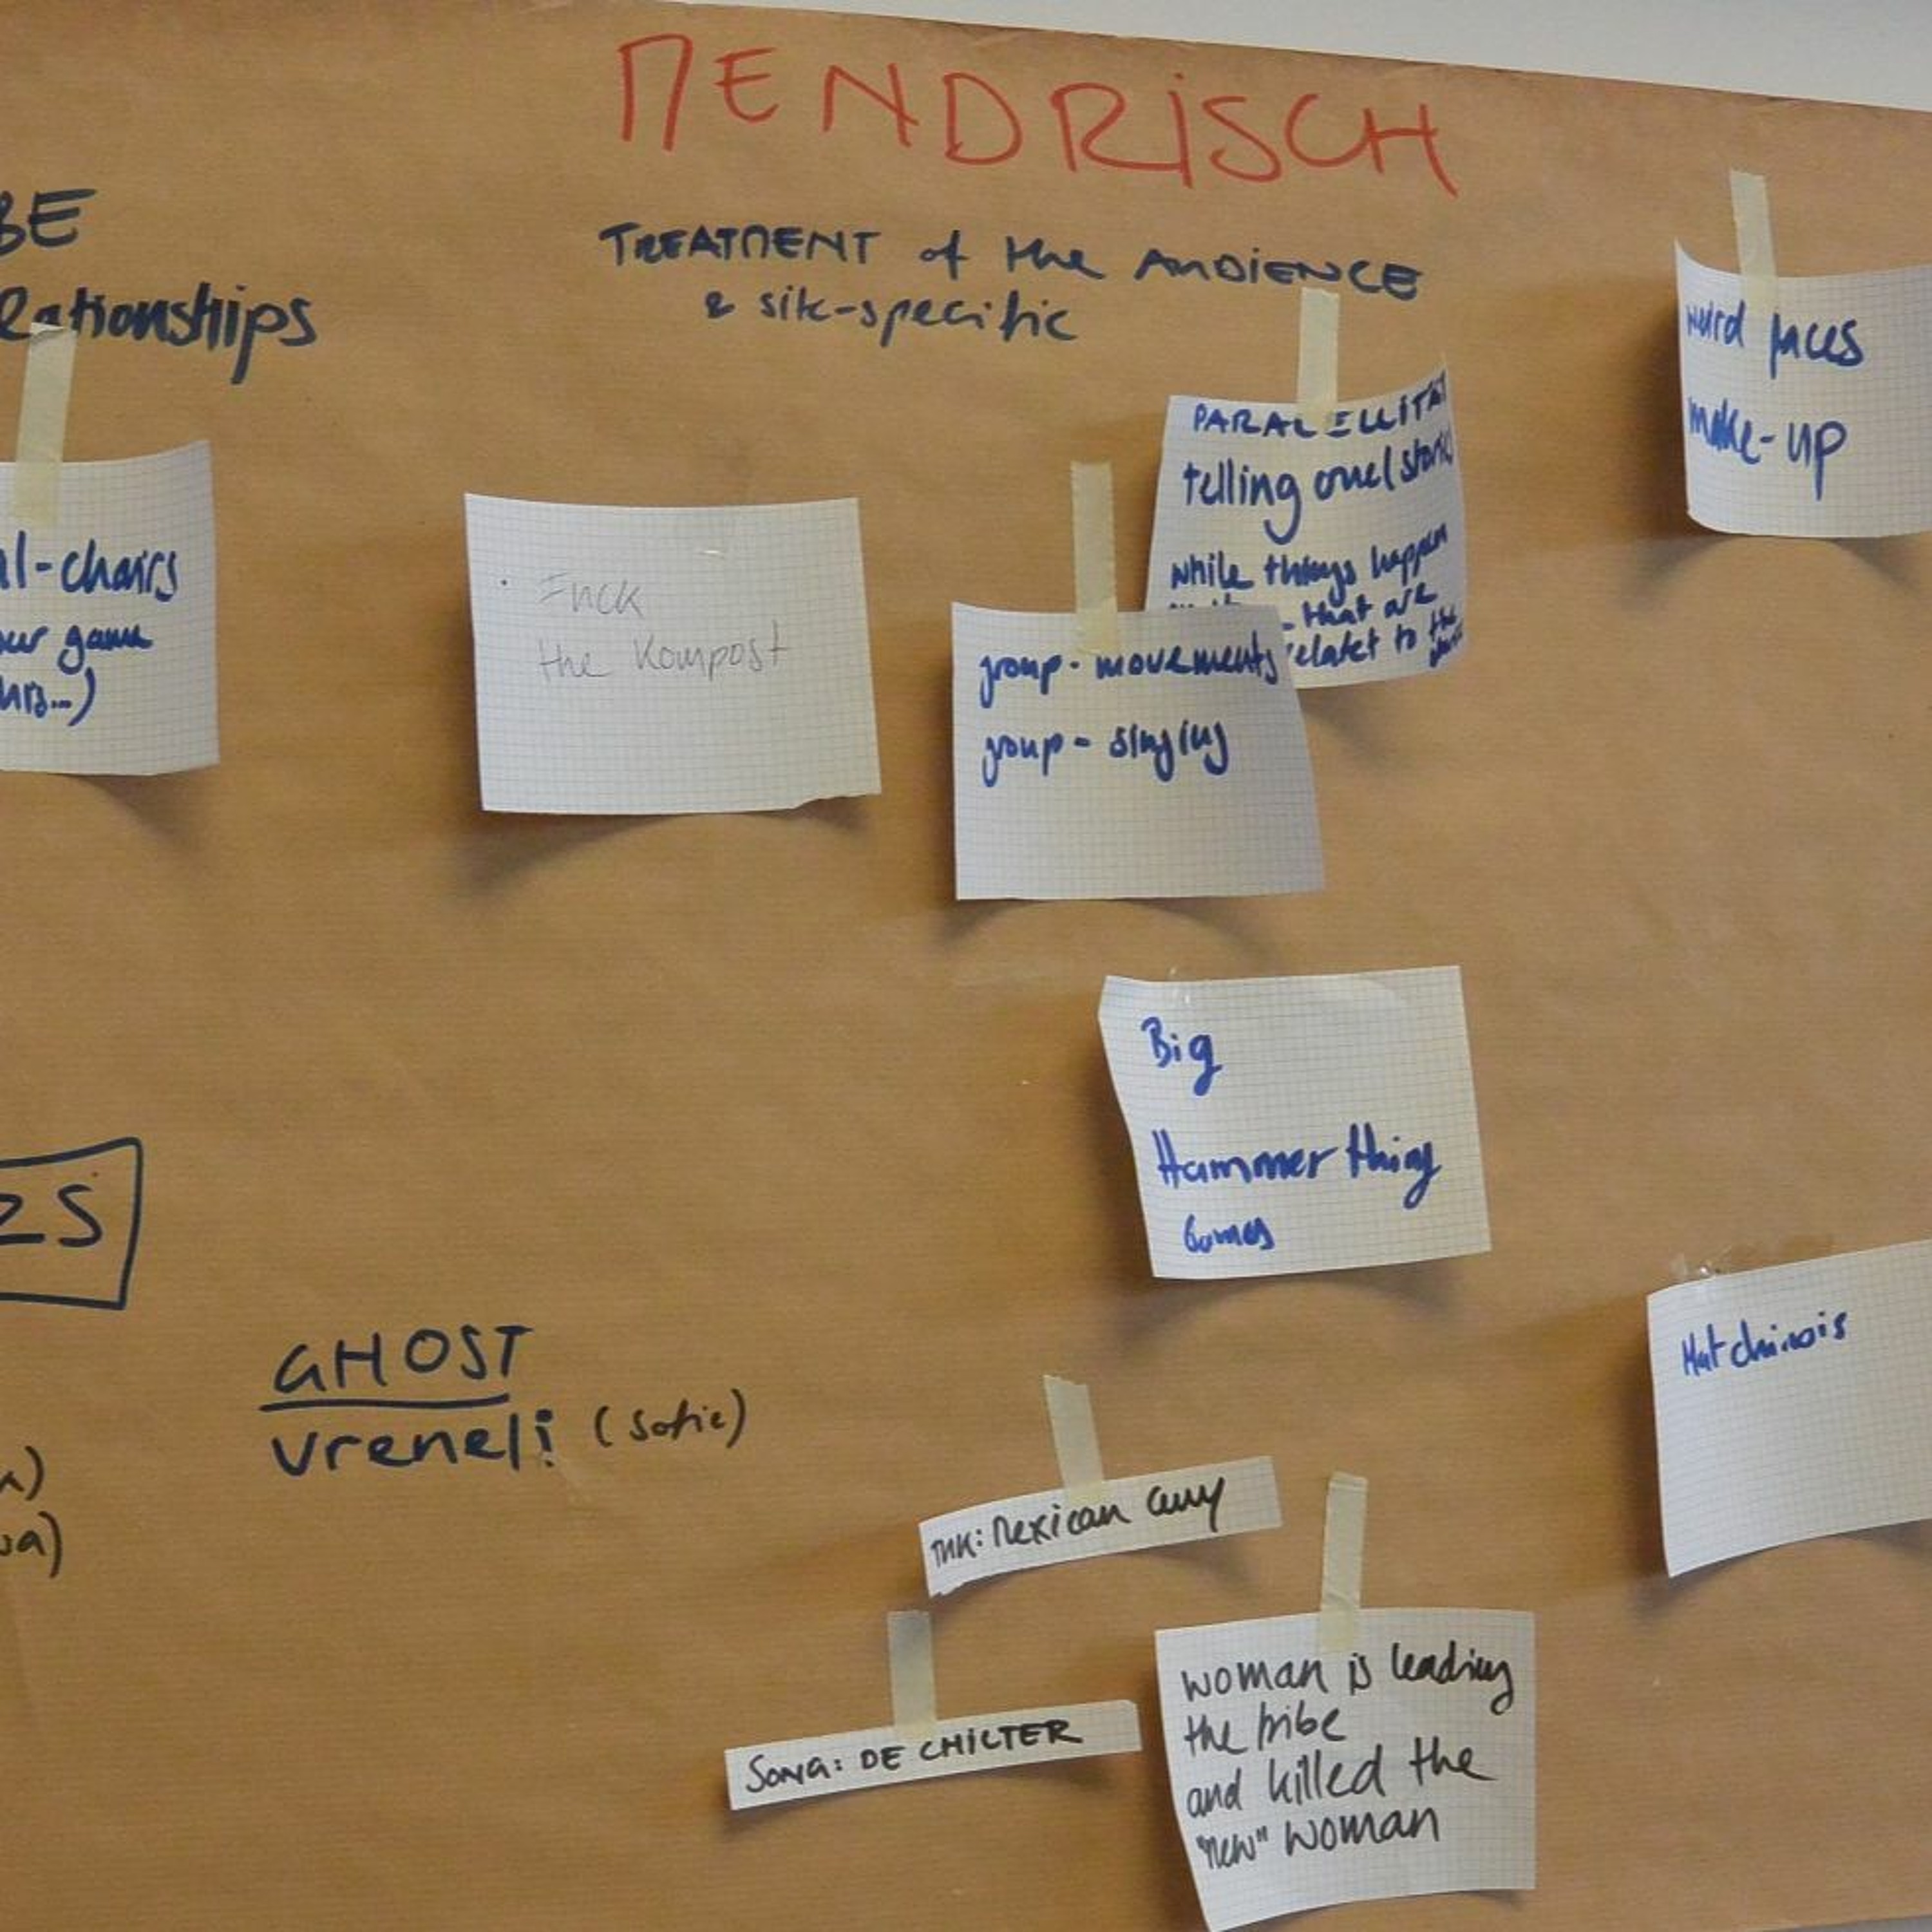 MENDRISCH
TREATMENT of the AUDIENCE
& site-specific
BE
Relationships
weird faces
make-up
PARALELLITÄT
telling one (stories
while things happen
that are
relatet to the
al-chairs
game
Fuck
the Kompost
group-movements
group-singing
Big
Hammer thing
Games
ZS
GHOST
Vreneli (Sofie)
Hat chinois
THK: Mexican
Song: DE CHILTER
woman is leading
the tribe
and killed the
"new" woman